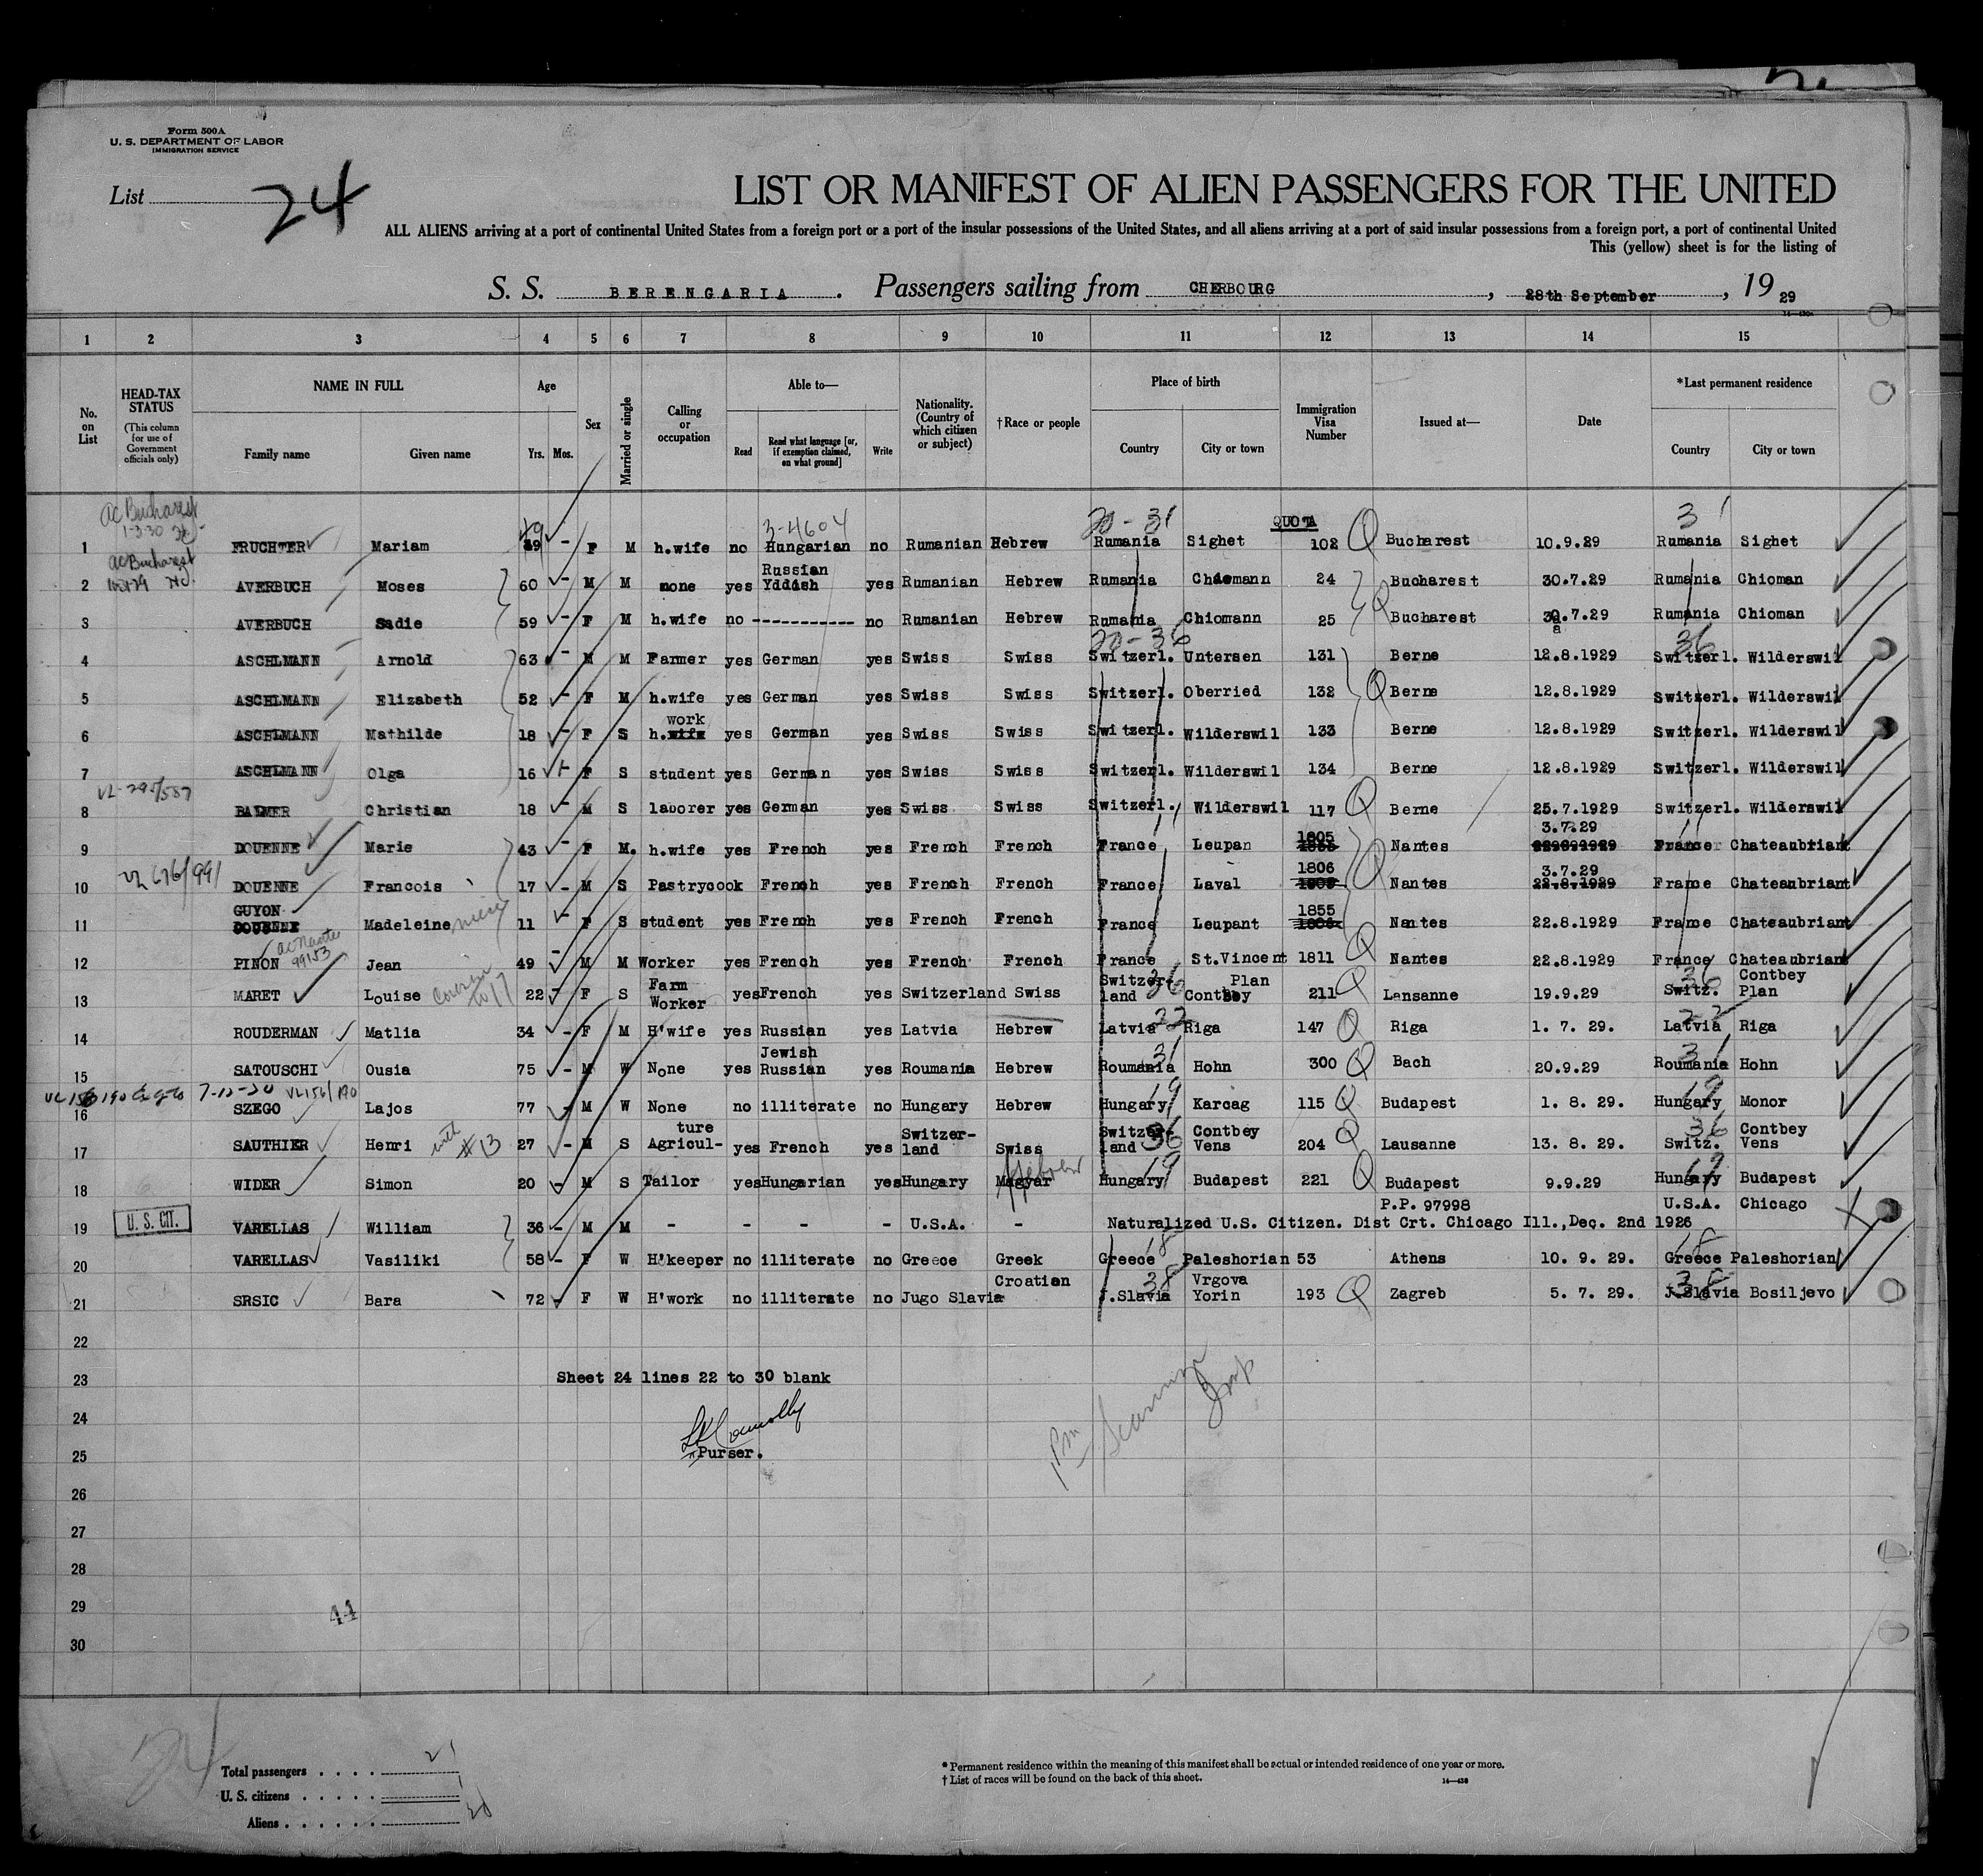 Form 500A
U. S. DEPARTMENT OF LABOR
IMMIGRATION SERVICE
List 24
LIST OR MANIFEST OF ALIEN PASSENGERS FOR THE UNITED
ALL ALIENS arriving at a port of continental United States from a foreign port or a port of the insular possessions of the United States, and all aliens arriving at a port of said insular possessions from a foreign port, a port of continental United
This (yellow) sheet is for the listing of
S. S. BERENGARIA. Passengers sailing from CHERBOURG, 28th September, 19 29
1 2 3 4 5 6 7 8 9 10 11 12 13 14 15
No. on List
HEAD-TAX STATUS (This column for use of Government officials only)
NAME IN FULL Family name Given name
Age Yrs. Mos.
Sex
Married or single
Calling or occupation
Able to— Read Read what language [or, if exemption claimed, on what ground] Write
Nationality. (Country of which citizen or subject)
†Race or people
Place of birth Country City or town
Immigration Visa Number
Issued at—
Date
*Last permanent residence Country City or town
ac Bucharest
1-3-30
3-4604 20-31 QUOTA 31
1 FRUCHTER Mariam 49 - F M h.wife no Hungarian no Rumanian Hebrew Rumania Sighet 102 Q Bucharest 10.9.29 Rumania Sighet
ac Bucharest
2 AVERBUCH Moses 60 - M M none yes Russian Yddish yes Rumanian Hebrew Rumania Chiomann 24 Bucharest 30.7.29 Rumania Chioman
3 AVERBUCH Sadie 59 - F M h.wife no ----------- no Rumanian Hebrew Rumania Chiomann 25 Q Bucharest 30.7.29 Rumania Chioman
20-36 36
4 ASCHLMANN Arnold 63 - M M Farmer yes German yes Swiss Swiss Switzerl. Untersen 131 Berne 12.8.1929 Switzerl. Wilderswil
5 ASCHLMANN Elizabeth 52 - F M h.wife yes German yes Swiss Swiss Switzerl. Oberried 132 Q Berne 12.8.1929 Switzerl. Wilderswil
6 ASCHLMANN Mathilde 18 - F S h.wife work yes German yes Swiss Swiss Switzerl. Wilderswil 133 Berne 12.8.1929 Switzerl. Wilderswil
7 ASCHLMANN Olga 16 - F S student yes German yes Swiss Swiss Switzerl. Wilderswil 134 Berne 12.8.1929 Switzerl. Wilderswil
VL-295/587
8 BALMER Christian 18 - M S laborer yes German yes Swiss Swiss Switzerl. Wilderswil 117 Q Berne 25.7.1929 Switzerl. Wilderswil
9 DOUENNE Marie 43 - F M. h.wife yes French yes French French France Leupan 1805 Nantes 3.7.29 France Chateaubriant
VL 676/991
10 DOUENNE Francois 17 - M S Pastrycook French yes French French France Laval 1806 Q Nantes 3.7.29 22.8.1929 France Chateaubriant
11 GUYON DOUENNE Madeleine niece 11 - F S student yes French yes French French France Leupant 1855 1806 Nantes 22.8.1929 France Chateaubriant
12 PINON ac Nantes 99153 Jean 49 - M M Worker yes French yes French French France St.Vincent 1811 Q Nantes 22.8.1929 France Chateaubriant
13 MARET Louise Cousin to 17 22 - F S Farm Worker yes French yes Switzerland Swiss Switzer-land 36 Plan Contbey 211 Q Lansanne 19.9.29 Switz. 36 Contbey Plan
14 ROUDERMAN Matlia 34 - F M H'wife yes Russian yes Latvia Hebrew Latvia 22 Riga 147 Q Riga 1. 7. 29. Latvia 22 Riga
15 SATOUSCHI Ousia 75 - M W None yes Jewish Russian yes Roumania Hebrew Roumania 31 Hohn 300 Q Bach 20.9.29 Roumania 31 Hohn
7-12-30 VL156/190
16 SZEGO Lajos 77 - M W None no illiterate no Hungary Hebrew Hungary 19 Karcag 115 Q Budapest 1. 8. 29. Hungary 19 Monor
17 SAUTHIER Henri with #13 27 - M S Agricul-ture yes French yes Switzer-land Swiss Switzer-land 36 Contbey Vens 204 Q Lausanne 13. 8. 29. Switz. 36 Contbey Vens
18 WIDER Simon 20 - M S Tailor yes Hungarian yes Hungary Magyar Hebrew Hungary 19 Budapest 221 Q Budapest 9.9.29 Hungary 19 Budapest
P.P. 97998 U.S.A. Chicago
19 U. S. CIT. VARELLAS William 36 - M M - - - - U.S.A. - Naturalized U.S. Citizen. Dist Crt. Chicago Ill.,Dec. 2nd 1926
20 VARELLAS Vasiliki 58 - F W H'keeper no illiterate no Greece Greek Greece 18 Paleshorian 53 Athens 10. 9. 29. Greece 18 Paleshorian
21 SRSIC Bara 72 F W H'work no illiterate no Jugo Slavia Croatian J.Slavia 38 Vrgova Yorin 193 Q Zagreb 5. 7. 29. J.Slavia 38 Bosiljevo
22
23 Sheet 24 lines 22 to 30 blank
24
25 Purser.
26
27
28
29 44
30
24
Total passengers . . . . 21
U. S. citizens . . . . . 1
Aliens . . . . . . 20
* Permanent residence within the meaning of this manifest shall be actual or intended residence of one year or more.
† List of races will be found on the back of this sheet.
14—430